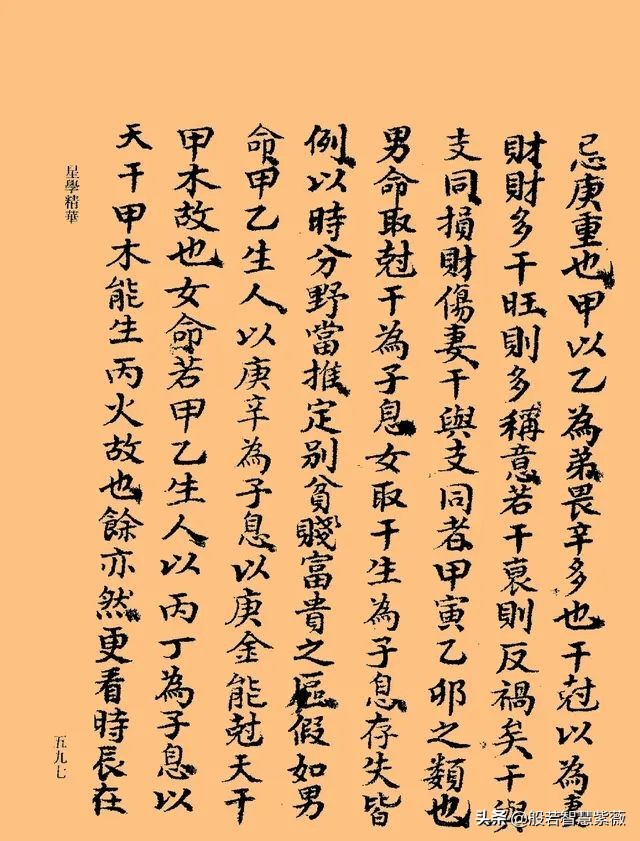 忌庚重也甲以乙為弟畏辛多也干尅以為妻
財財多干旺則多稱意若干衰則反禍矣干與
支同損財傷妻干與支同者甲寅乙卯之類也
男命取尅干為子息女取干生為子息存失皆
例以時分野當推定別貧賤富貴之區假如男
命甲乙生人以庚辛為子息以庚金能尅天干
甲木故也女命若甲乙生人以丙丁為子息以
天干甲木能生丙火故也餘亦然更看時辰在
星學精華
五九七
头条 @般若智慧紫薇